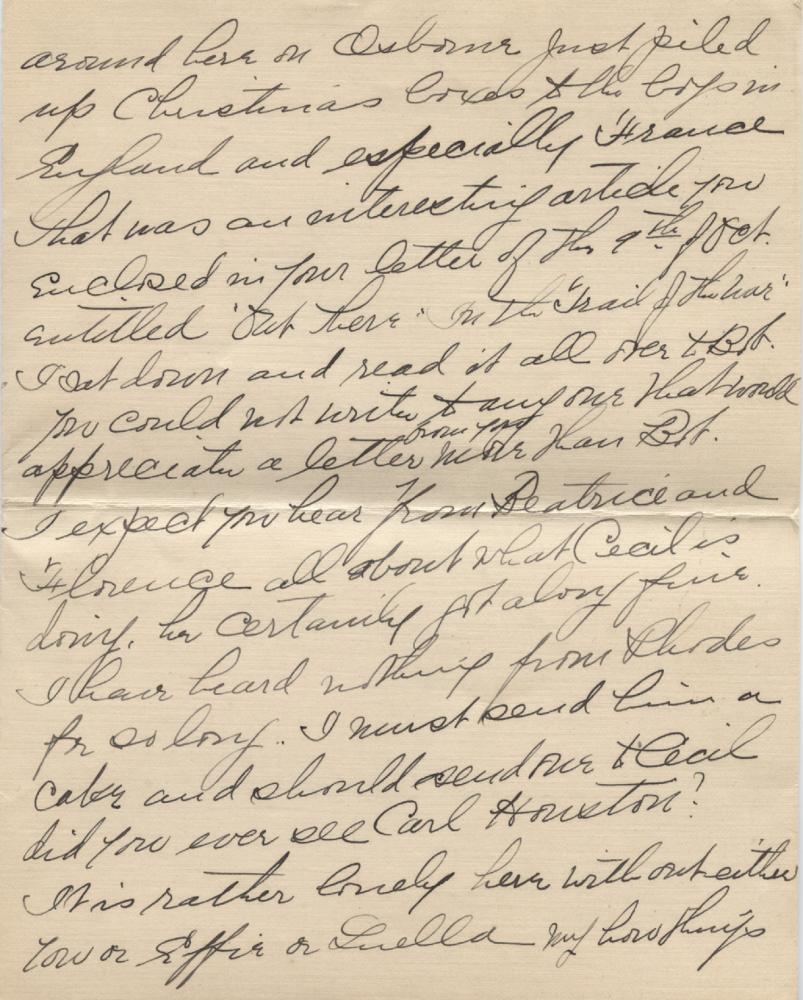 around here on Osborne just piled
up Christmas boxes to the boys in
England and especially France
That was an interesting article you
enclosed in your letter of the 9th of Oct.
entitled "Out There" "On the Trail of the War"
I sat down and read it all over to Bot.
you could not write to any one that would
appreciate a letter from you more than Bot.
I expect you hear from Beatrice and
Florence all about what Cecil is
doing, he certainly got along fine.
I have heard nothing from Rhodes
for so long.. I must send him a
cake and should send one to Cecil
did you ever see Carl Houston?
It is rather lonely here without either
you or Effie or Luella my how things